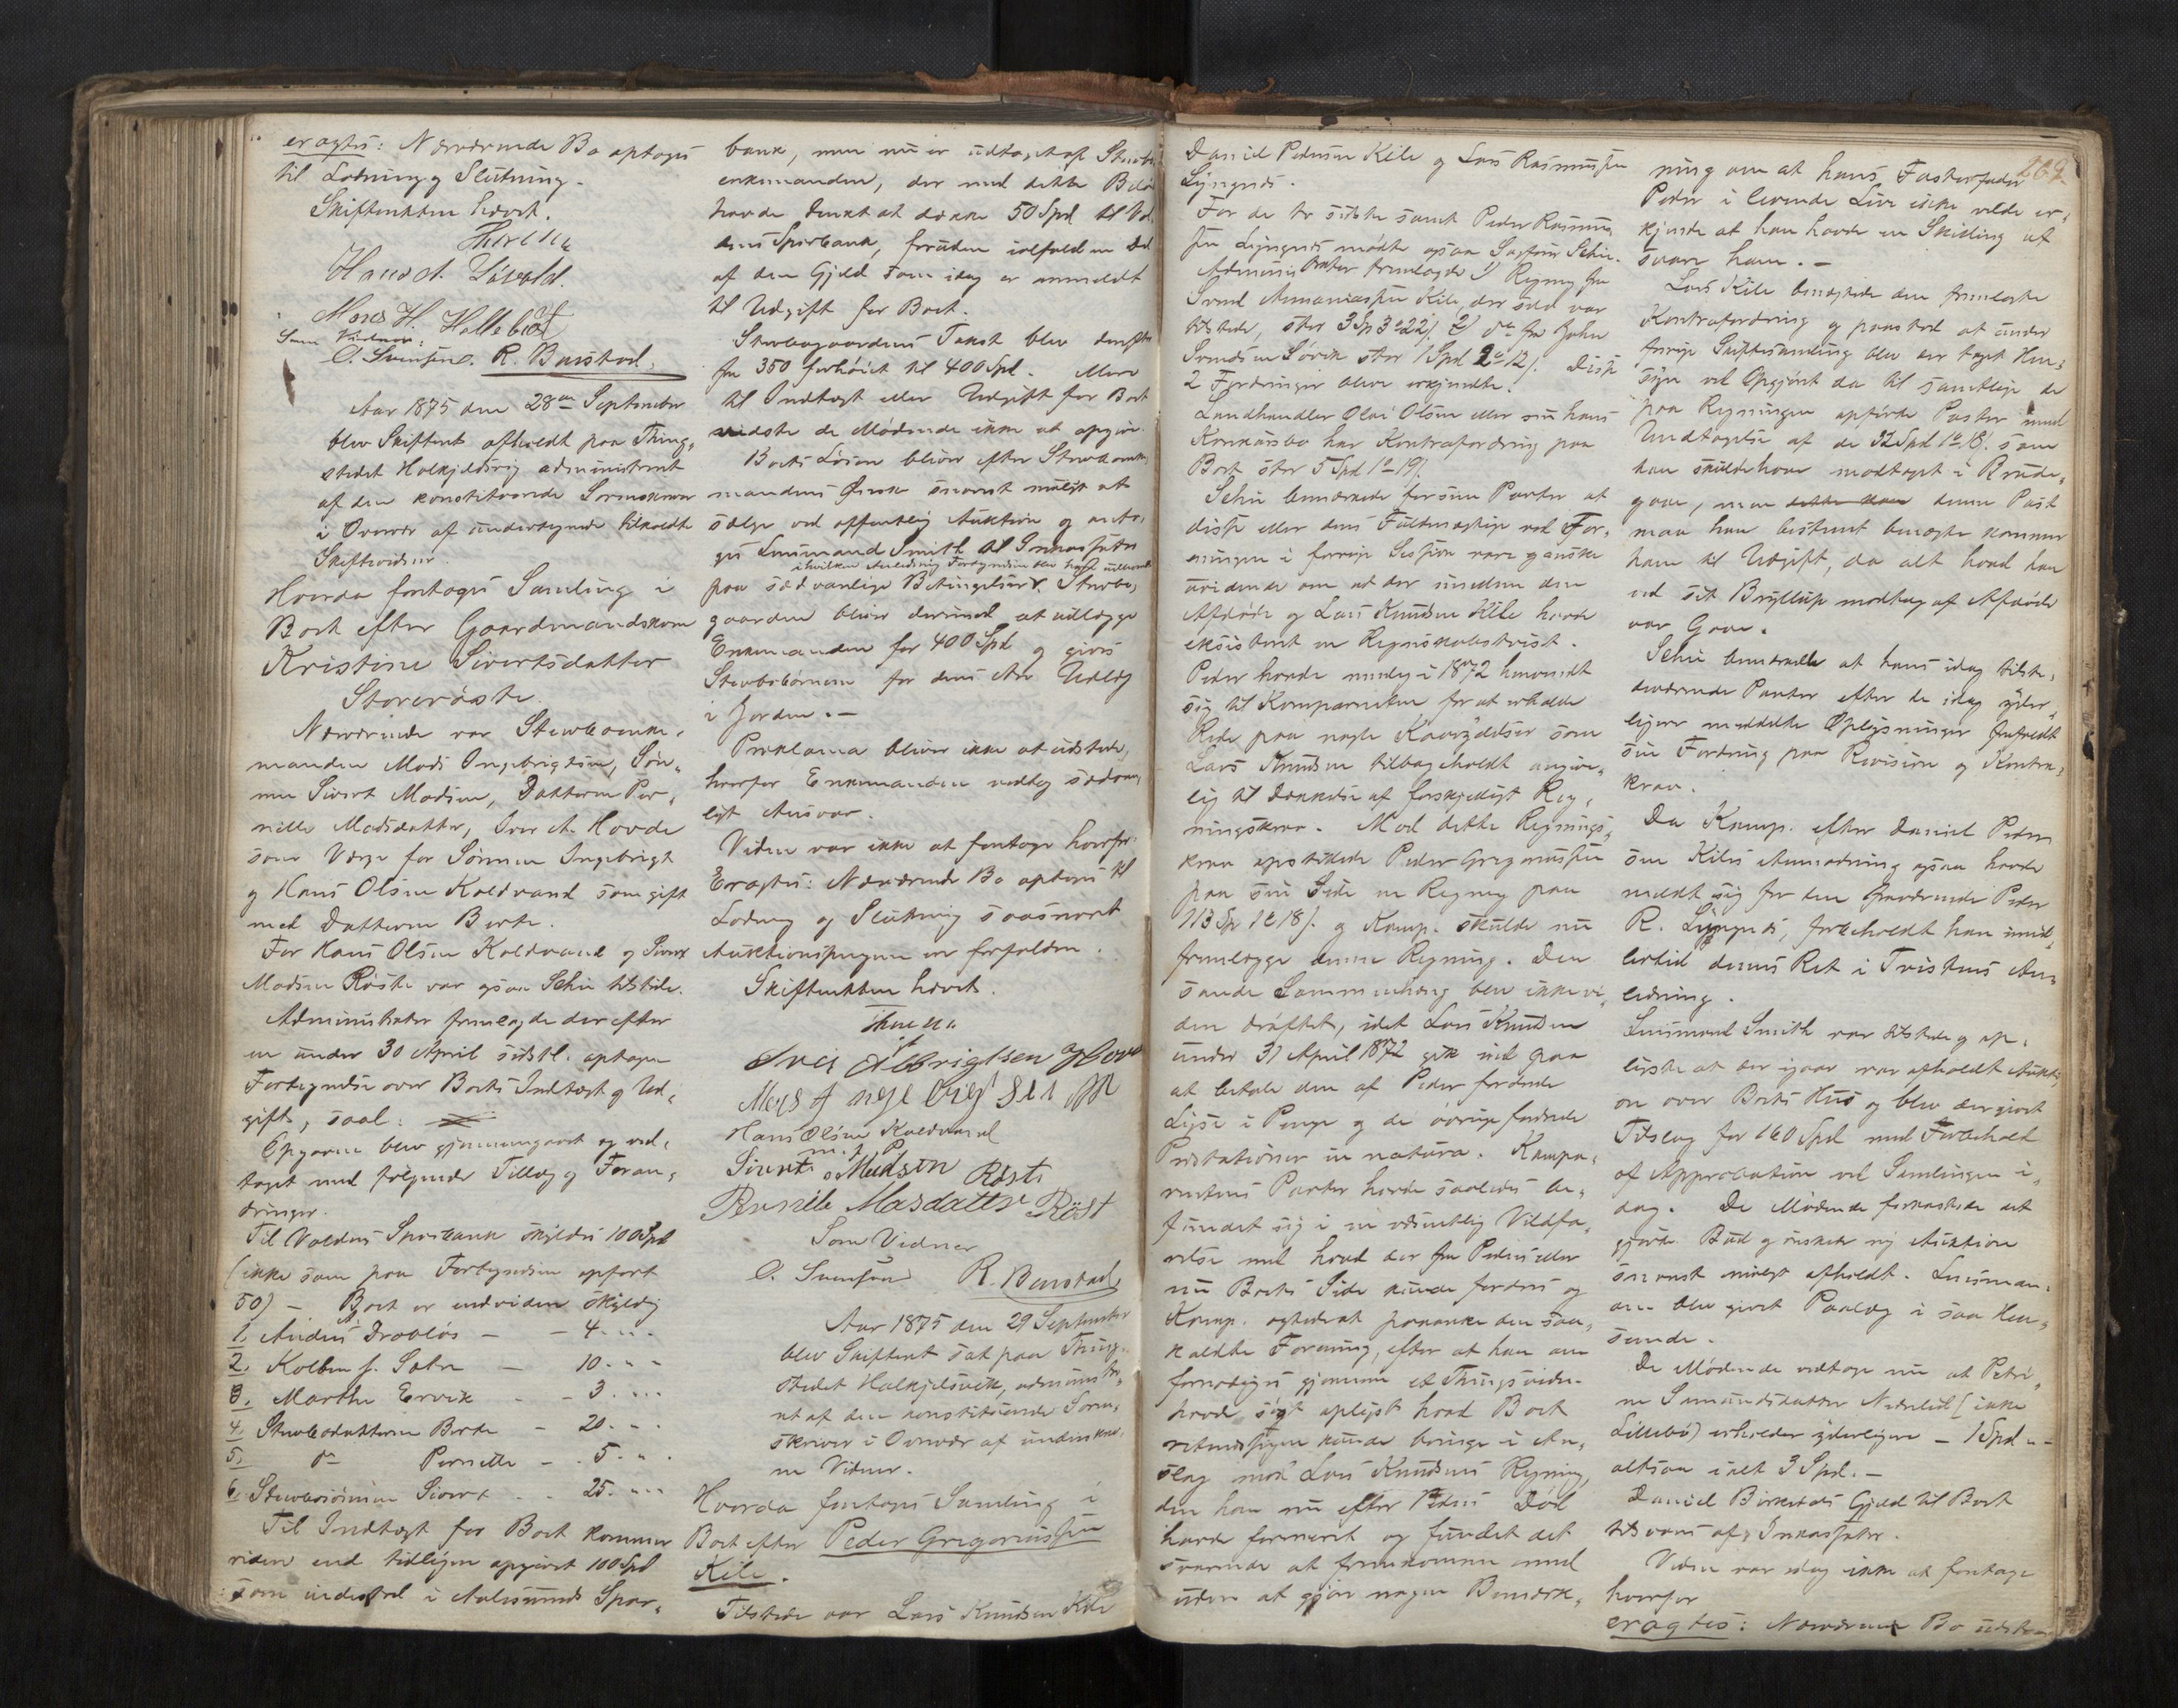 eragtes: Nærværende Bo optoges
til Lodning og Slutning.
Skifteretten hævet.
Hans A. Løvold.
Mons H. Hallebøt
Som Vidner:
O. Svensen. R. Barstad.
Aar 1875 den 28de September
blev Skifteret afholdt paa Thing-
stedet Holkjeldsvig administreret
af den konstituerede Sorenskriver
i Overvær af undertegnede tilkaldte
Skiftevidner.
Hvorda foretoges Samling i
Boet efter Gaardmandskone
Kristine Sivertsdatter
Storerøste.
Nærværende var Stervboenke-
manden Mads Ingebrigtsen, Søn-
nen Sivert Madsen, Datteren Per-
nille Madsdatter, Iver A. Hovde
som Værge for Sønnen Ingebrigt
og Hans Olsen Koldvand som gift
med Datteren Berte.
For Hans Olsen Koldvand og Sivert
Madsen Røste var ogsaa Schie tilstede.
Administrator fremlagde derefter
en under 30 April sidstl. optagen
Fortegnelse over Boets Indtægt og Ud-
gift, saal:
Opgaven blev gjennemgaaet og ved-
taget med følgende Tillæg og Foran-
dringer.
Til Voldens Sparebank skyldes 100 Spd
(ikke som paa Fortegnelsen opført
50) – Boet er endvidere skyldig
1. Andreas Drabløs – – 4. " "
2. Kolben s. Sætre – 10. " "
3. Marthe Ervik – – 3. " "
4. Stervbodatteren Berte – 20. " "
5. do Pernille – . 5. " "
6. Stervbosønnen Sivert . . 25. " "
Til Indtægt for Boet kommer
videre end tidligere opgivet 100 Spd
som indestod i Aalesunds Spare-
bank, men nu er udtaget af Stervbo-
enkemanden, der med dette Beløb
havde tænkt at dække 50 Spd til Vol-
dens Sparebank, foruden ialfald en Del
af den Gjeld som idag er anmeldt
til Udgift for Boet.
Stervbogaardens Takst blev derefter
fra 350 forhøiet til 400 Spd. Mere
til Indtægt eller Udgift for Boet
vidste de Mødende ikke at opgive.
Boets Løsøre bliver efter Stervboenke-
mandens Ønske snarest muligt at
sælge ved offentlig Auktion og anto-
ges Lensmand Smith til Inkassator
i hvilken Anledning Fortegnelsen blev ham udleveret
paa sædvanlige Betingelser. Stervbo-
gaarden bliver derimod at udlægge
Enkemanden for 400 Spd og gives
Stervbobørnene for deres Arv Udlæg
i Jorden. –
Proklama bliver ikke at udstede,
hvorfor Enkemanden vedtog sædvan-
ligt Ansvar.
Videre var ikke at foretage hvorfor
Eragtes: Nærværende Bo optoges til
Lodning og Slutning saasnart
Auktionspengene er forfaldne.
Skifteretten hævet.
Iver Albrigtsen Hovde
Mads Ingebrigtsen
Hans Olsen Koldvand
m. p. P.
Sivert Madsen Røste
Pernille Masdatter Røst
Som Vidner
O. Svensen R. Barstad
Aar 1875 den 29 September
blev Skifteret sat paa Thing-
stedet Holkjelsvik, administre-
ret af den konstituerede Soren-
skriver i Overvær af underskrev-
ne Vidner.
Hvorda foretoges Samling i
Boet efter Peder Gregoriussen
Kile.
Tilstede var Lars Knudsen Kile
269.
Daniel Pedersen Kile og Lars Rasmussen
Lyngnes.
For de to sidste samt Peder Rasmus-
sen Lyngnes mødte ogsaa Sagfører Schie.
Administrator fremlagde 1) Regning fra
Svend Annaniassen Kile, der selv var
tilstede, stor 3 Sp 3 o 22 s. 2) do fra John
Svendsen Løvik stor 1 Spd 2 o 12 s. Disse
2 Fordringer bleve erkjendte.
Landhandler Olai Olsen eller nu hans
Konkursbo har Kontrafordring paa
Boet stor 5 Spd 1 o 19 s.
Schie bemærkede for sine Parter at
disse eller deres Fuldmægtige ved For-
eningen i forrige Session vare ganske
uvidende om at der imellem den
Afdøde og Lars Knudsen Kile havde
eksisteret en Regnskabstvist.
Peder havde nemlig i 1872 henvendt
sig til Komparenten for at erholde
Rede paa nogle Kaarydelser som
Lars Knudsen tilbageholdt angive-
lig til Dækkelse af forskjelligt Reg-
ningskrav. Mod dette Regnings-
krav opstillede Peder Gregoriussen
paa sin Side en Regning paa
113 Sp 1 o 18 s. og Komp. skulde nu
fremlægge denne Regning. Den
sande Sammenhæng blev ikke vi-
dere drøftet, idet Lars Knudsen
under 3) April 1872 gik ind paa
at betale den af Peder fordrede
Lysse i Penge og de øvrige fordrede
Prestationer in natura. Kompa-
rentens Parter havde saaledes be-
fundet sig i en væsentlig Vildfa-
relse med hvad der fra Peders eller
nu Boets Side kunde fordres og
Komp. agtede at paaanke den saa-
kaldte Forening, efter at han om
fornødiges gjennem et Thingsvidne
havde søgt oplyst hvad Boet
retmæssigen kunde bringe i An-
slag mod Lars Knudsens Regning,
den han nu efter Peders Død
havde formeret og fundet det
svarende at fremkomme med
uden at gjøre nogen Bemærk-
ning om at hans Fosterfader
Peder i levende Live ikke vilde er-
kjende at han havde en Skilling at
svare ham. –
Lars Kile benægtede den fremlagte
Kontrafordring og paastod at under
forrige Skiftesamling blev der taget Hen-
syn ved Opgjøret da til samtlige de
paa Regningen opførte Poster med
Undtagelse af de 32 Spd 1 o 18 s. som
han skulde have modtaget i Brude-
gave, men denne Post
maa han bestemt benægte kommer
ham til Udgift, da alt hvad han
ved sit Bryllup modtog af Afdøde
var Gave.
Schie bemærkede at hans idag tilste-
deværende Parter efter de idag yder-
ligere meddelte Oplysninger frafaldt
sin Fordring paa Revision og Kontra-
krav.
Da Komp. efter Daniel Peder-
sen Kiles Anmodning ogsaa havde
meldt sig for den fraværende Peder
R. Lyngnes, forbeholdt han imid-
lertid dennes Ret i Tvistens An-
ledning.
Lensmand Smith var tilstede og op-
lyste at der igaar var afholdt Aukti-
on over Boets Hus og blev der givet
Tilslag for 160 Spd med Forbehold
af Approbation ved Samlingen i-
dag. De Mødende forkastede det
gjorte Bud og ønskede ny Auktion
snarest muligt afholdt. Lensman-
den blev givet Paalæg i saa Hen-
seende.
De Mødende vedtoge nu at Petri-
ne Samundsdatter Nedrelid (ikke
Lillebø) erholder yderligere – 1 Spd –
altsaa ialt 3 Spd. –
Daniel Birkedals Gjeld til Boet
tilsvares af Inkassator.
Videre var idag ikke at foretage
hvorfor
eragtes: Nærværende Bo udstaar